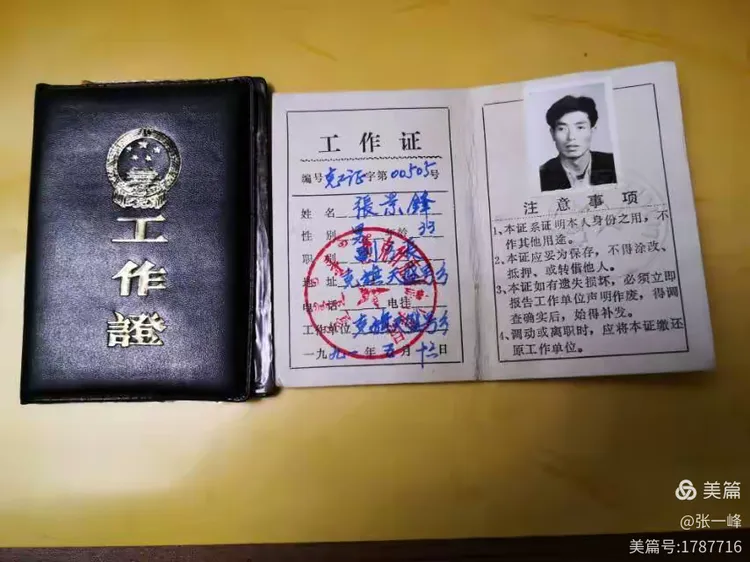 工作證
工作证
编号克工证字第00505号
姓名 張景鋒
性别 男 年龄 33
职别 副乡长
地址 克旗天
电话 电挂
工作单位 克旗天
一九九一年五月十二日
注意事项
1、本证系证明本人身份之用，不
作其他用途。
2、本证应妥为保存，不得涂改、
抵押、或转借他人。
3、本证如有遗失损坏，必须立即
报告工作单位声明作废，得调
查确实后，始得补发。
4、调动或离职时，应将本证缴还
原工作单位。
美篇
@张一峰
美篇号:1787716